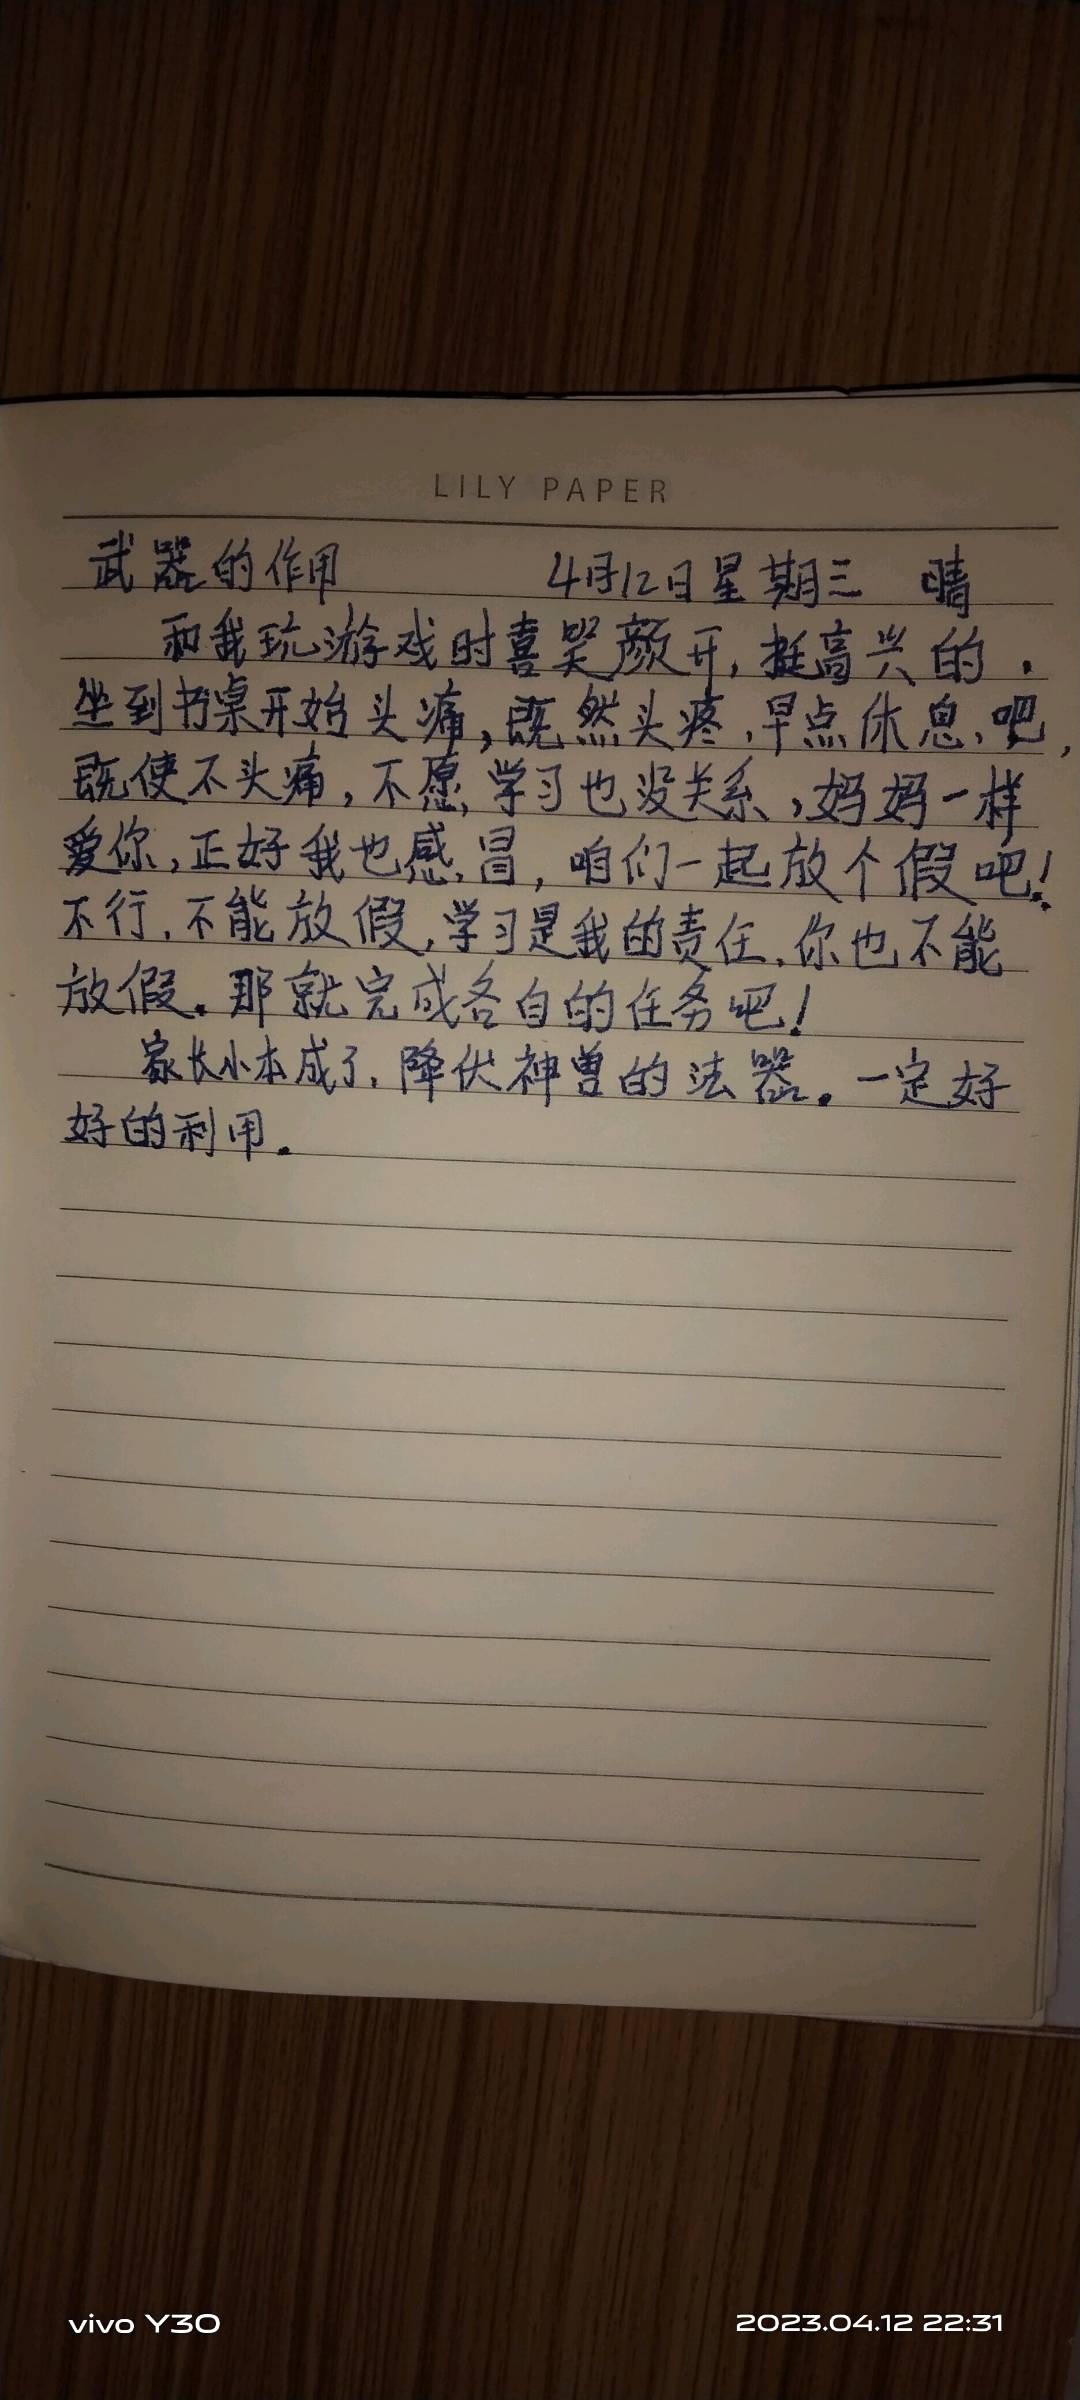 LILY PAPER
武器的作用 4月12日星期三 晴
和我玩游戏时喜笑颜开,挺高兴的.
坐到书桌开始头痛,既然头疼,早点休息吧,
既使不头痛,不愿学习也没关系,妈妈一样
爱你,正好我也感冒,咱们一起放个假吧!
不行,不能放假,学习是我的责任,你也不能
放假。那就完成各自的任务吧!
家长小本成了,降伏神兽的法器。一定好
好的利用。
vivo Y30
2023.04.12 22:31